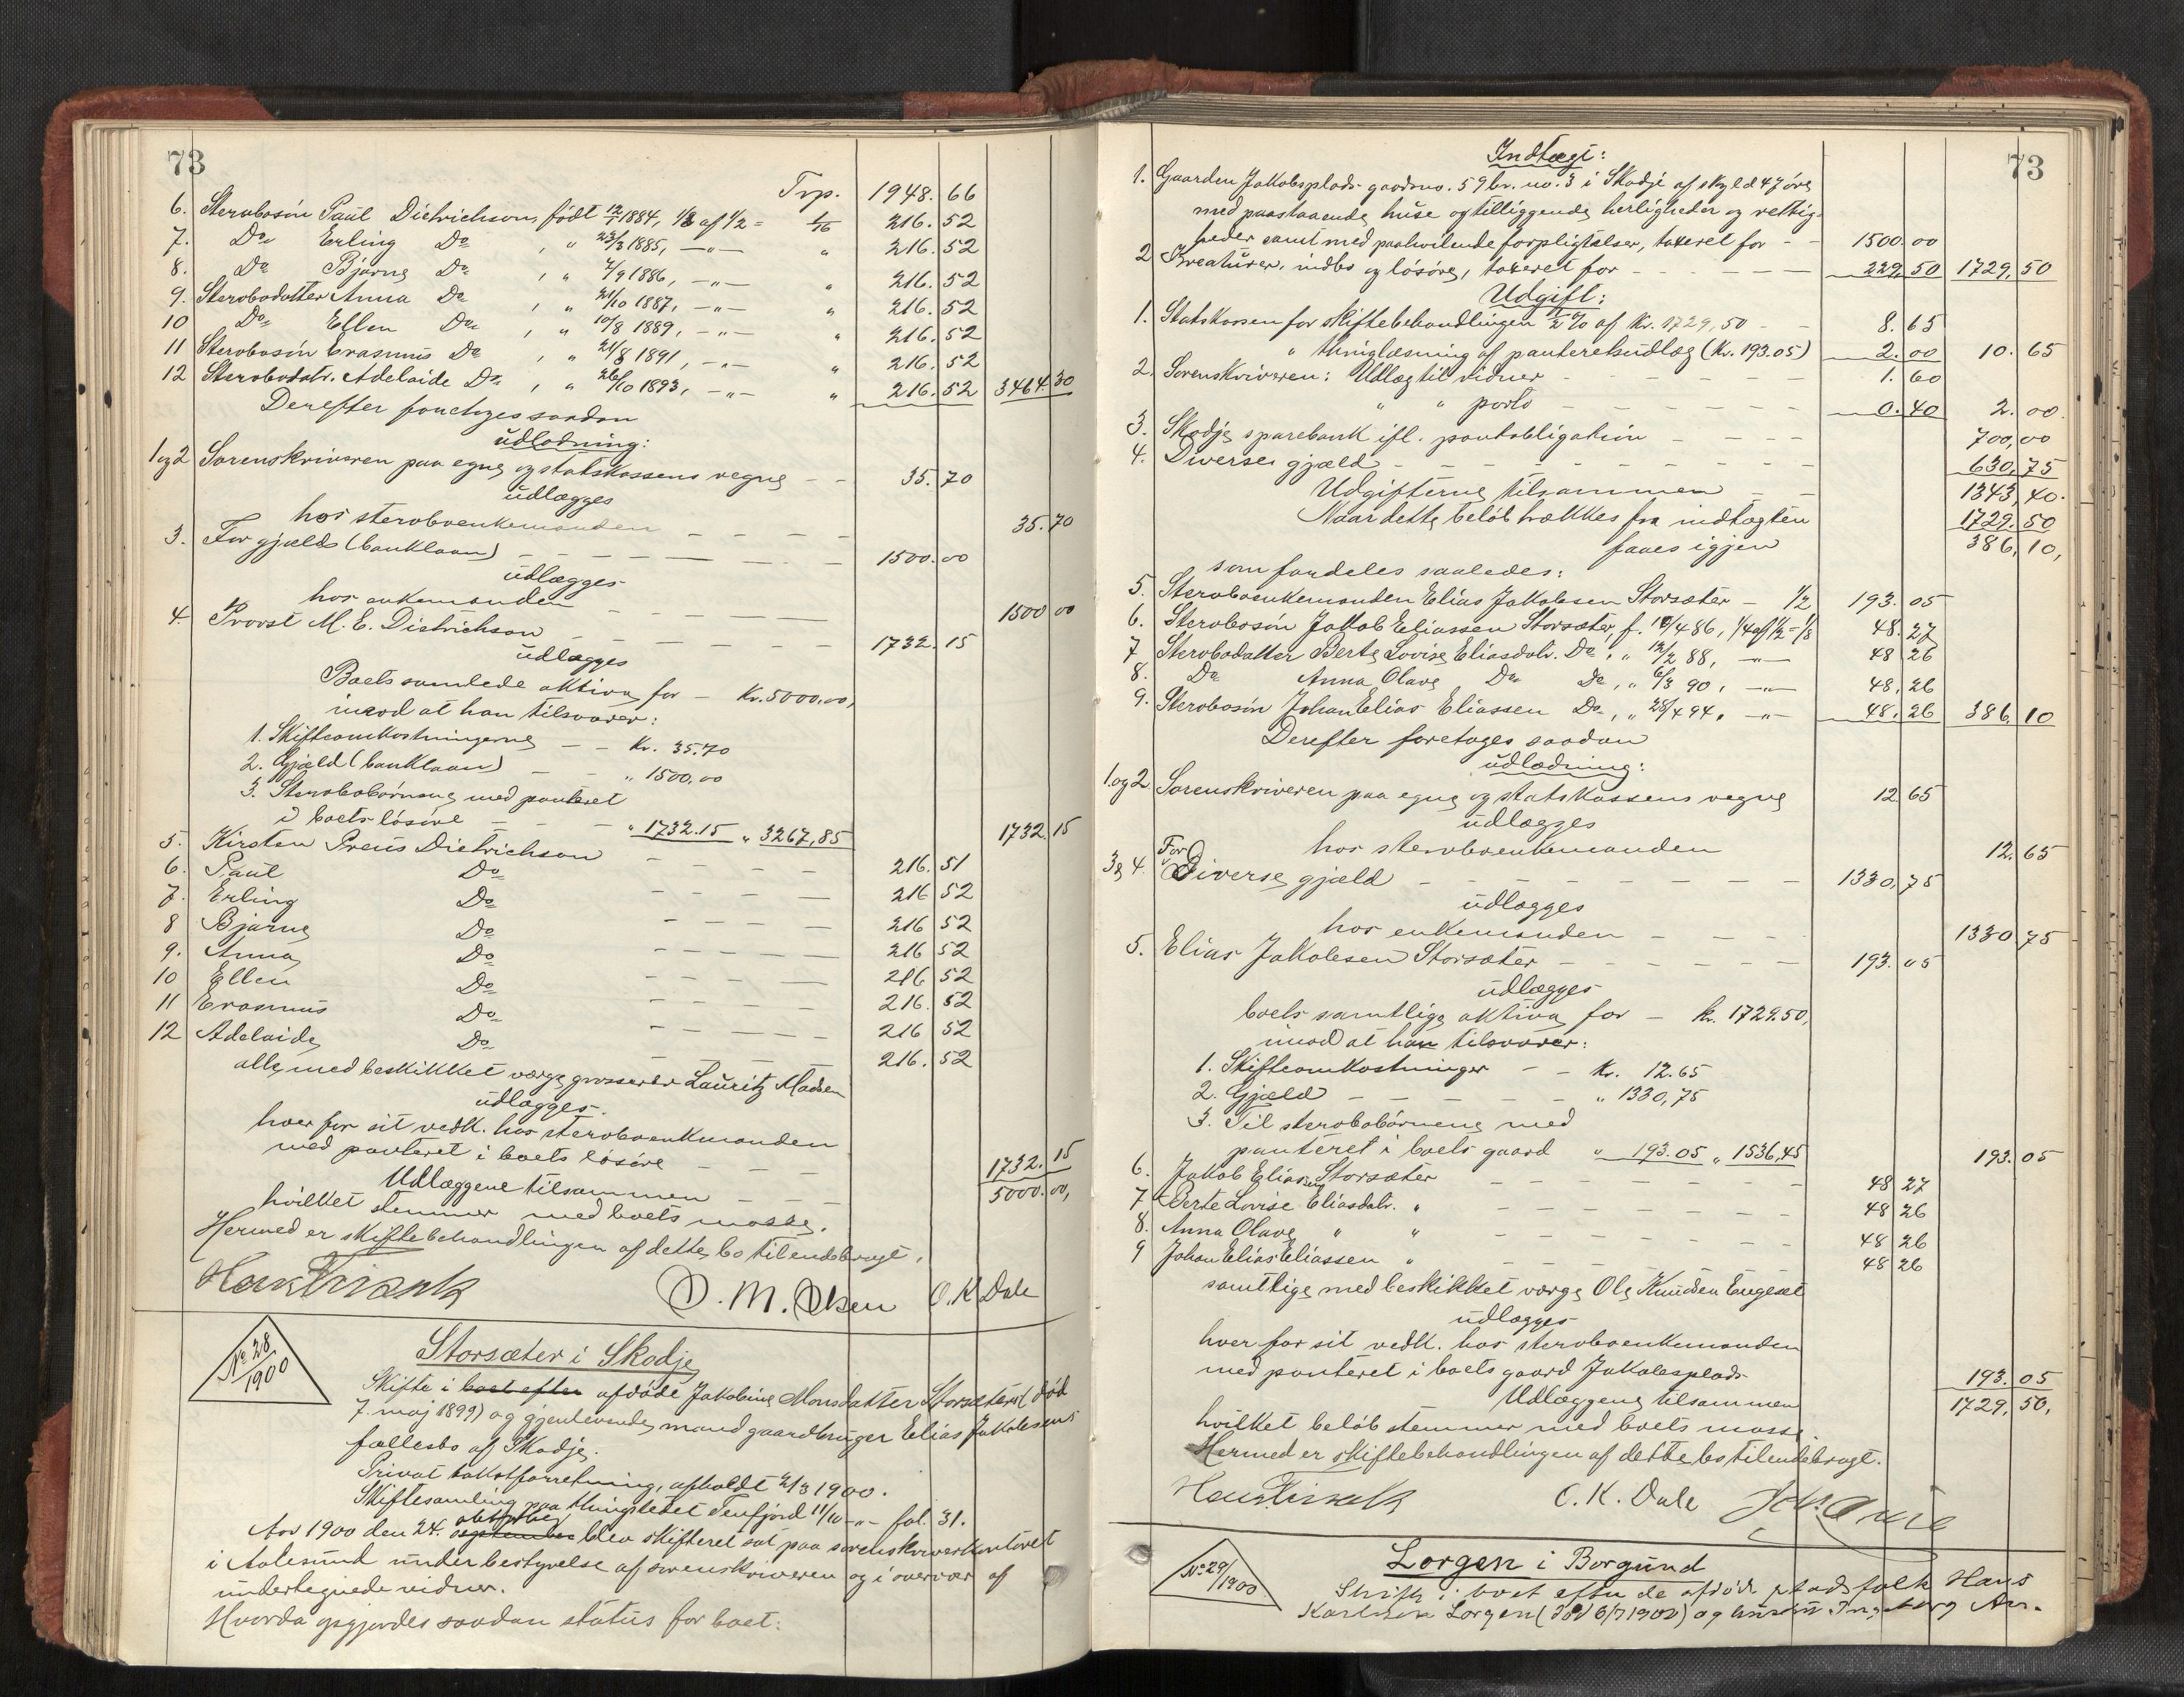 73
Trp. 1948. 66
6. Sterobosön Paul Dietrichson, født 12/7 1884, 1/8 af 1/2 = 1/16 216. 52
7. Do Erling Do , " 23/3 1885, —"— " 216. 52
8. Do Bjarne Do , " 4/9 1886, —"— " 216. 52
9. Sterobodatter Anna Do , " 21/10 1887, —"— " 216. 52
10 Do Ellen Do , " 10/8 1889, —"— " 216. 52
11 Sterobosön Erasmus Do , " 21/8 1891, —"— " 216. 52
12 Sterobodatr. Adelaide Do , " 26/10 1893, —"— " 216. 52 3464. 30
Derefter foretoges saadan
udlodning:
1 og 2 Sorenskriveren paa egne og statskassens vegne — 35. 70
udlægges
hos sterboenkemanden — 35. 70
3. For gjæld (banklaan) — 1500. 00
udlægges
hos enkemanden — 1500 00
4. Provst M. E. Dietrichson — 1732. 15
udlægges
Boets samlede aktiva for — Kr. 5000.00,
imod at han tilsvarer:
1. Skifteomkostningerne — Kr. 35.70
2. Gjæld (banklaan) — " 1500.00
3. Sterbobørnene med panteret
i boets løsøre — " 1732.15 " 3267,85 1732. 15
5. Kirsten Preus Dietrichson — 216. 51
6. Paul Do — 216 52
7. Erling Do — 216 52
8 Bjarne Do — 216 52
9. Anna Do — 216 52
10 Ellen Do — 216. 52
11 Erasmus Do — 216 52
12 Adelaide Do — 216. 52
alle med beskikket værge grosserer Lauritz Madsen
udlægges.
hver for sit vedk. hos sterboenkemanden
med panteret i boets løsøre — 1732. 15
Udlæggene tilsammen — 5000. 00,
hvilket stemmer med boets masse.
Hermed er skiftebehandlingen af dette bo tilendebragt.
O. M. Olsen O. K. Dale
No 28/1900
Storsæter i Skodje
Skifte i boet efter afdøde Jakobine Monsdatter Storsæter (død
7. maj 1899) og gjenlevende mand gaardbruger Elias Jakobsens
fællesbo af Skodje.
Privat takstforretning, afholdt 2/3 1900.
Skiftesamling paa thingstedet Tenfjord 11/10 —"— fol. 31.
Aar 1900 den 24. september oktober blev skifteret sat paa sorenskriverkontoret
i Aalesund under bestyrelse af sorenskriveren og i overvær af
undertegnede vidner.
Hvorda opgjordes saadan status for boet:
73
Indtægt:
1. Gaarden Jakobsplads gaardsno. 59 br. no. 3 i Skodje af skyld 47 øre
med paastaaende huse og tilliggende herligheder og rettig-
heder samt med paahvilende forpligtelser, taxeret for — 1500. 00
2 Kreaturer, indbo og løsøre, taxeret for — 229. 50 1729, 50
Udgift:
1. Statskassen for skiftebehandlingen 1/2 % af Kr. 1729,50 — 8. 65
" thinglæsning af panteretsudlæg (Kr. 193.05) 2. 00 10. 65
2. Sorenskriveren: Udlæg til vidner — 1. 60
" " porto — 0. 40 2. 00.
3. Skodje sparebank ifl. pantobligation — 700, 00
4. Diverse gjæld — 630, 75
Udgifterne tilsammen — 1343, 40.
Naar dette beløb trækkes fra indtægten 1729. 50
faaes igjen 386, 10,
som fordeles saaledes:
5. Sterboenkemanden Elias Jakobsen Storsæter — 1/2 193. 05
6. Sterbosøn Jakob Eliassen Storsæter, f. 10/4 86, 1/4 af 1/2 = 1/8 48. 27
7 Sterbodatter Berte Lovise Eliasdatr. Do, " 12/2 88, —"— 48 26
8. Do Anna Olave Do Do, " 6/3 90, —"— 48. 26
9. Sterbosøn Johan Elias Eliassen Do, " 28/4 94, —"— 48. 26 386. 10
Derefter foretoges saadan
udlodning:
1 og 2 Sorenskriveren paa egne og statskassens vegne 12. 65
udlægges
hos sterboenkemanden 12. 65
3 & 4. For Diverse gjæld — 1330, 75
udlægges
hos enkemanden — 1330 75
5. Elias Jakobsen Storsæter — 193. 05
udlægges
boets samtlige aktiva for — Kr. 1729.50,
imod at han tilsvarer:
1. Skifteomkostninger — Kr. 12.65
2. Gjæld — " 1330,75
3. Til sterbobørnene med
panteret i boets gaard " 193.05 " 1536,45 193. 05
6. Jakob Eliassen Storsæter — 48 27
7 Berte Lovise Eliasdatr. " — 48 26
8. Anna Olave " " — 48 26
9 Johan Elias Eliassen " — 48 26
samtlige med beskikket værge Ole Knudsen Engeset
udlægges
hver for sit vedk. hos sterboenkemanden
med panteret i boets gaard Jakobsplads 193. 05
Udlæggene tilsammen 1729, 50,
hvilket beløb stemmer med boets masse.
Hermed er skiftebehandlingen af dette bo tilendebragt.
O. K. Dale
No 29/1900
Lorgen i Borgund
Skifte i boet efter de afdøde pladsfolk Hans
Karlsen Lorgen (død 6/7 1900) og hustru Ingeborg An-